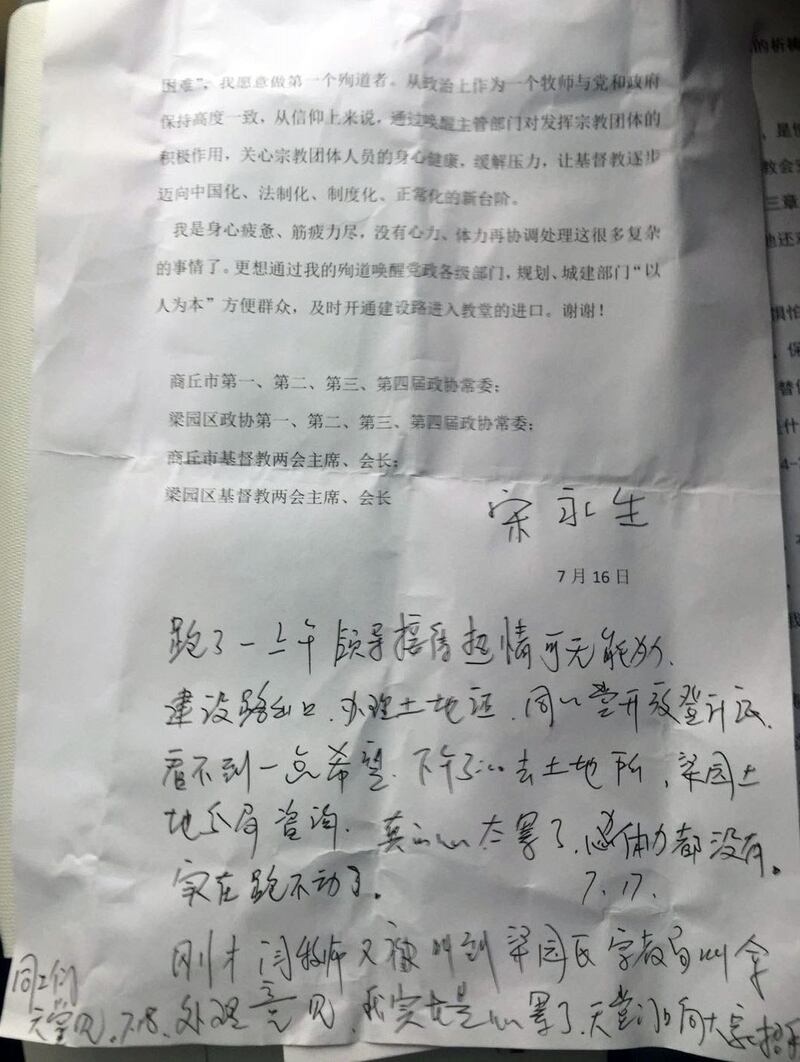 困难"，我愿意做第一个殉道者。从政治上作为一个牧师与党和政府
保持高度一致，从信仰上来说，通过唤醒主管部门对发挥宗教团体的
积极作用，关心宗教团体人员的身心健康，缓解压力，让基督教逐步
迈向中国化、法制化、制度化、正常化的新台阶。
我是身心疲惫、筋疲力尽，没有心力、体力再协调处理这很多复杂
的事情了。更想通过我的殉道唤醒党政各级部门，规划、城建部门“以
人为本”方便群众，及时开通建设路进入教堂的进口。谢谢！
商丘市第一、第二、第三、第四届政协常委；
梁园区政协第一、第二、第三、第四届政协常委；
商丘市基督教两会主席、会长；
梁园区基督教两会主席、会长
宋永生
7月16日
跑了一上午 领导接待热情可无能为力
建设路出口、办理土地证、同心堂开放登记证
看不到一点希望、下午3:00去土地所，梁园土
地分局咨询、真的心太累了、体力都没有。
实在跑不动了。 7.17.
刚才闫牧师又被叫到梁园区宗教局 拿
处理意见、我实在是心累了、天堂门口向大家招手
同工们
天堂见。7.18.
的祈祷